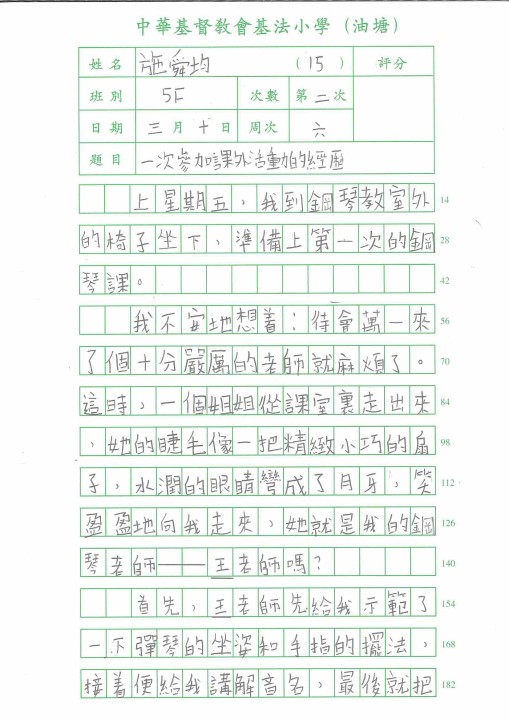 中華基督教會基法小學（油塘）
姓名 施舜均 （15） 評分
班別 5F 次數 第二次
日期 三月十日 周次 六
題目 一次參加課外活動的經歷
上星期五，我到鋼琴教室外 14
的椅子坐下，準備上第一次的鋼 28
琴課。 42
我不安地想着：待會萬一來 56
了個十分嚴厲的老師就麻煩了。 70
這時，一個姐姐從課室裏走出來 84
，她的睫毛像一把精緻小巧的扇 98
子，水潤的眼睛彎成了月牙，笑 112
盈盈地向我走來，她就是我的鋼 126
琴老師——王老師嗎？ 140
首先，王老師先給我示範了 154
一下彈琴的坐姿和手指的擺法， 168
接着便給我講解音名，最後就把 182